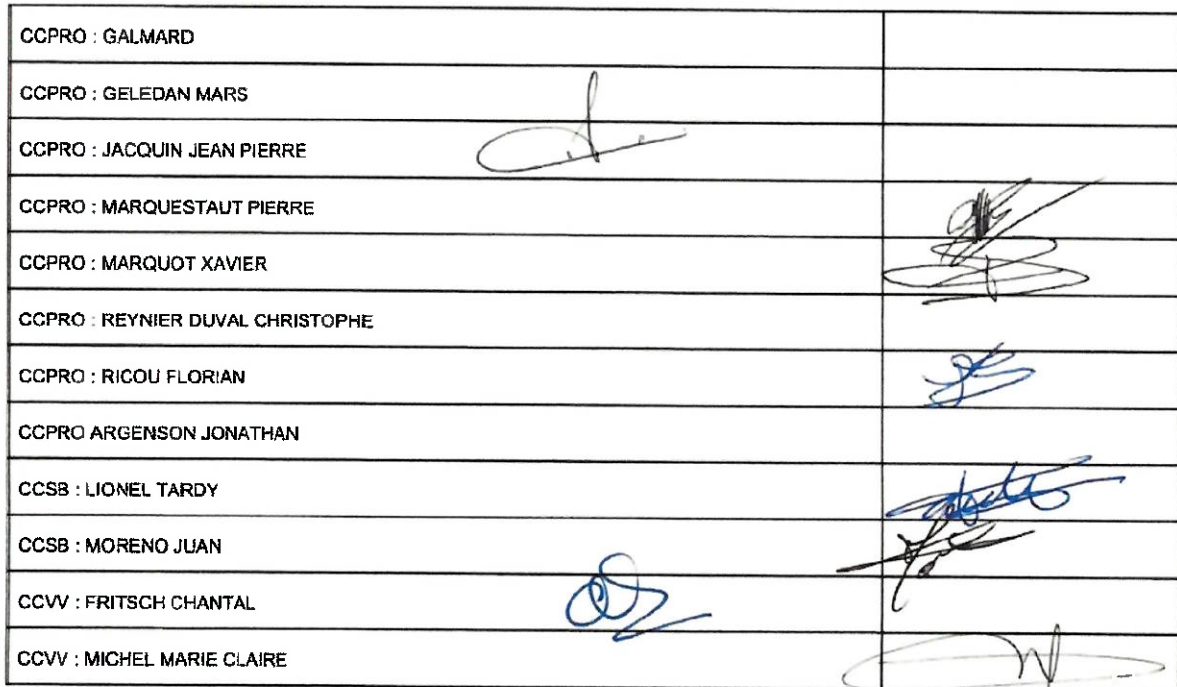 CCPRO : GALMARD
CCPRO : GELEDAN MARS
CCPRO : JACQUIN JEAN PIERRE
CCPRO : MARQUESTAUT PIERRE
CCPRO : MARQUOT XAVIER
CCPRO : REYNIER DUVAL CHRISTOPHE
CCPRO : RICOU FLORIAN
CCPRO ARGENSON JONATHAN
CCSB : LIONEL TARDY
CCSB : MORENO JUAN
CCVV : FRITSCH CHANTAL
CCVV : MICHEL MARIE CLAIRE